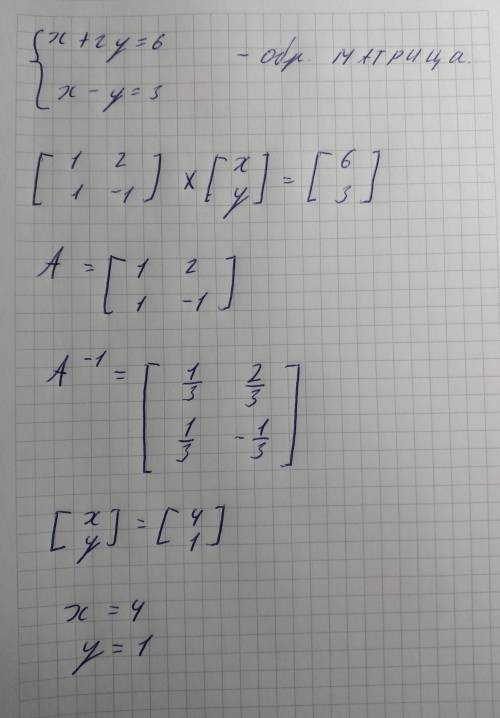 { x + 2y = 6 - обр. матрица.
x - y = 3
[ 1 2 ; 1 -1 ] × [ x ; y ] = [ 6 ; 3 ]
A = [ 1 2 ; 1 -1 ]
A⁻¹ = [ 1/3 2/3 ; 1/3 -1/3 ]
[ x ; y ] = [ 4 ; 1 ]
x = 4
y = 1